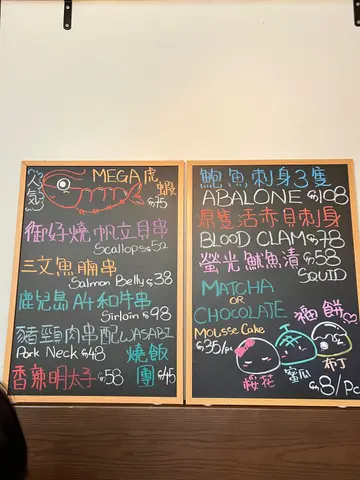 人氣
MEGA虎蝦
$75
御好燒 帆立貝串
Scallops $52
三文魚腩串
Salmon Belly $38
鹿兒島 A4 和牛串
Sirloin $98
豬頸肉串配WASABI
Pork Neck $48
燒飯團 $45
香辣明太子 $58
鮑魚刺身3隻
ABALONE $108
原隻活赤貝刺身
BLOOD CLAM $78
螢光魷魚漬 $58
SQUID
MATCHA
OR
CHOCOLATE
MOUSSE CAKE
$35/pc
福餅
桜花
蜜瓜
布丁
$8/pc